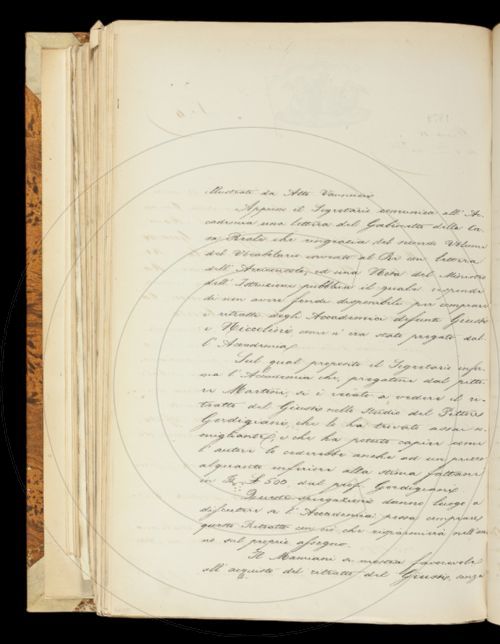 illustrato da Atto Vannucci.
Appresso il Segretario comunica all'Ac-
cademia una lettera del Gabinetto della Ca-
sa Reale che ringrazia del secondo Volume
del Vocabolario inviato al Re con lettera
dell'Arciconsolo, ed una Nota del Ministro
dell'Istruzione pubblica il quale risponde
di non avere fondi disponibili per comprare
i ritratti degli Accademici defunti Giusti
e Niccolini come n'era stato pregato dal-
l'Accademia.
Sul qual proposito il Segretario infor-
ma l'Accademia che, pregatone dal pitto-
re Martini, si è recato a vedere il ri-
tratto del Giusti nello Studio del Pittore
Gordigiani, che lo ha trovato assai so-
migliante, e che ha potuto capire come
l'autore lo cederebbe anche ad un prezzo
alquanto inferiore alla stima fattane
in 500 dal prof. Gordigiani.
Queste spiegazioni danno luogo a
discutere se l'Accademia possa comprare
questo Ritratto con ciò che risparmierà nell'an-
no sul proprio assegno.
Il Mamiani si mostra favorevole
all'acquisto del ritratto del Giusti, senza